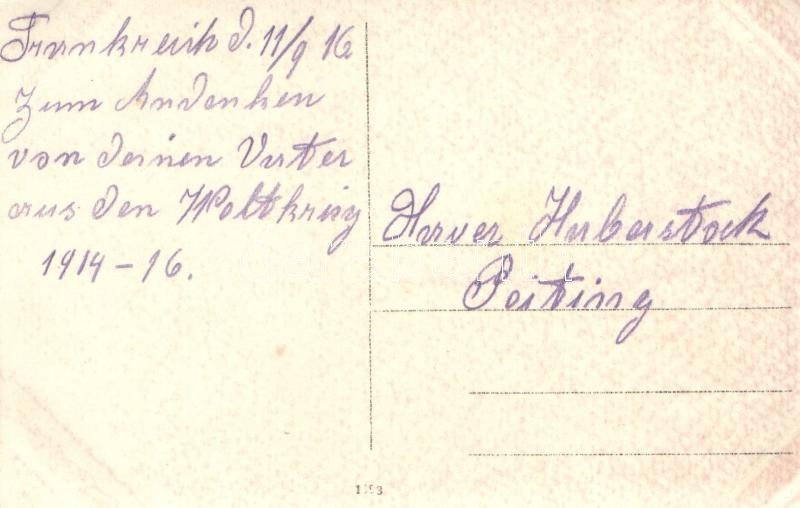 Frankreich d. 11/9 16
Zum Andenken
von deinen Vater
aus den Weltkrieg
1914-16.
Xaver Haberstock
Peiting